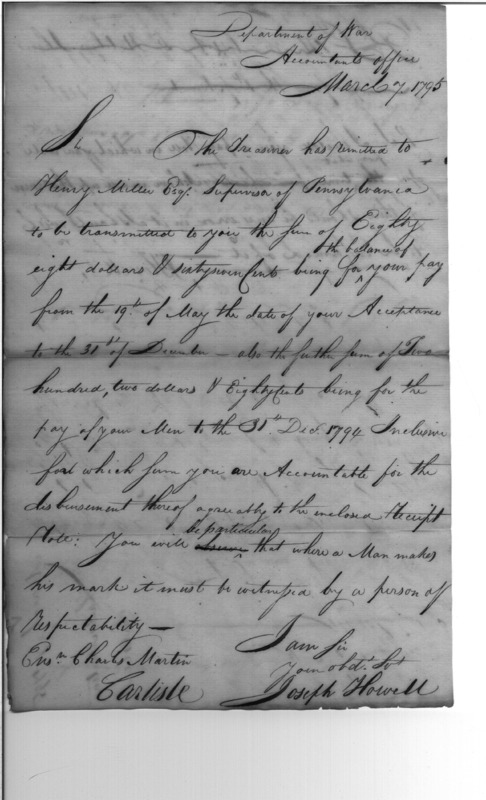 Department of War
Accountants office
March 7, 1795
Sir The Treasurer has remitted to
Henry Miller Esqr. Supervisor of Pennsylvania
to be transmitted to you the sum of Eighty
eight dollars & sixtyseven Cents being for the balance of your pay
from the 19th. of May the date of your Acceptance
to the 31st of December — also the further sum of Two
hundred, two dollars & Eighty Cents being for the
pay of your Men to the 31st Decr. 1794 Inclusive
for which sum you are Accountable for the
disbursement thereof agreeably to the inclosed Receipt
Note: You will be particular that where a Man makes
his mark it must be witnessed by a person of
respectability —
I am Sir
Ensn Charles Martin
Your obdt. Svt
Carlisle
Joseph Howell